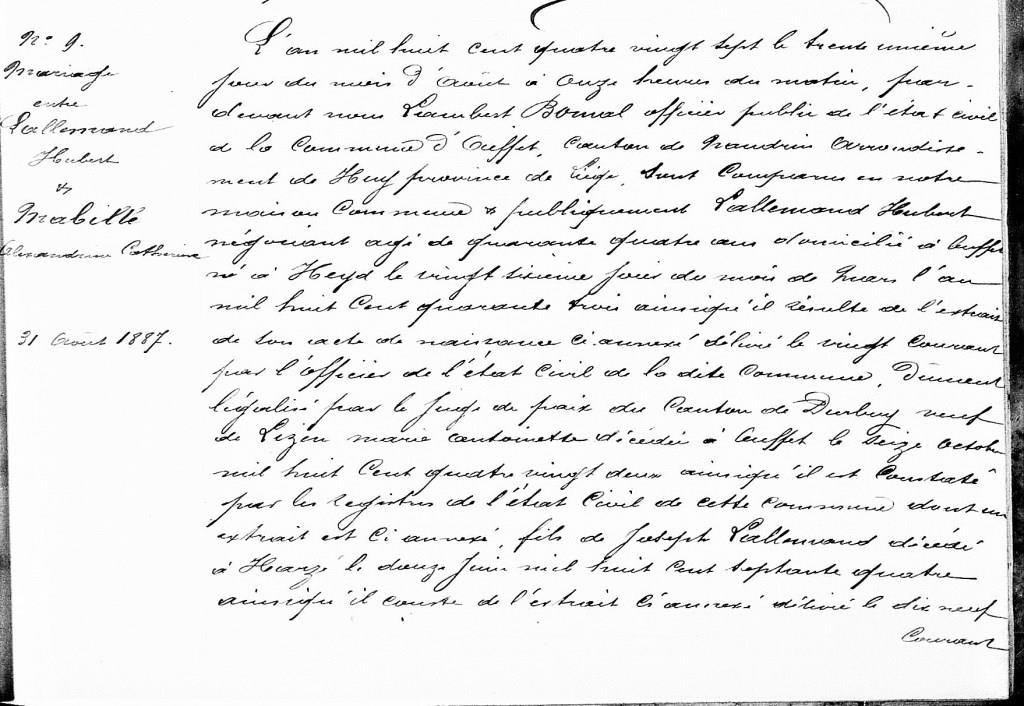 N° 9.
Mariage
entre
Lallemand
Hubert
&
Mabille
Alexandrine Catherine
31 Août 1887.
L'an mil huit cent quatre vingt sept le trente unième
jour du mois d'Août à onze heures du matin, par-
devant nous Lambert Bomal officier public de l'état civil
de la Commune d'Ouffet, Canton de Nandrin Arrondisse-
ment de Huy province de Liége, Sont Comparus en notre
maison Commune & publiquement Lallemand Hubert
négociant agé de quarante quatre ans domicilié à Ouffet
né à Heyd le vingt sixième jour du mois de Mars l'an
mil huit Cent quarante trois ainsiqu'il résulte de l'extrait
de son acte de naissance ci annexé délivré le vingt Courant
par l'Officier de l'état Civil de la dite Commune, Dûment
légalisé par le Juge de paix du Canton de Durbuy veuf
de Lizen marie antoinette décédée à Ouffet le seize Octobre
mil huit Cent quatre vingt deux ainsiqu'il est Constaté
par les registres de l'état Civil de cette commune dont un
extrait est Ci annexé, fils de Joseph Lallemand décédé
à Harzé le douze Juin mil huit Cent septante quatre
ainsiqu'il conste de l'extrait Ci annexé délivré le dix neuf
Courant